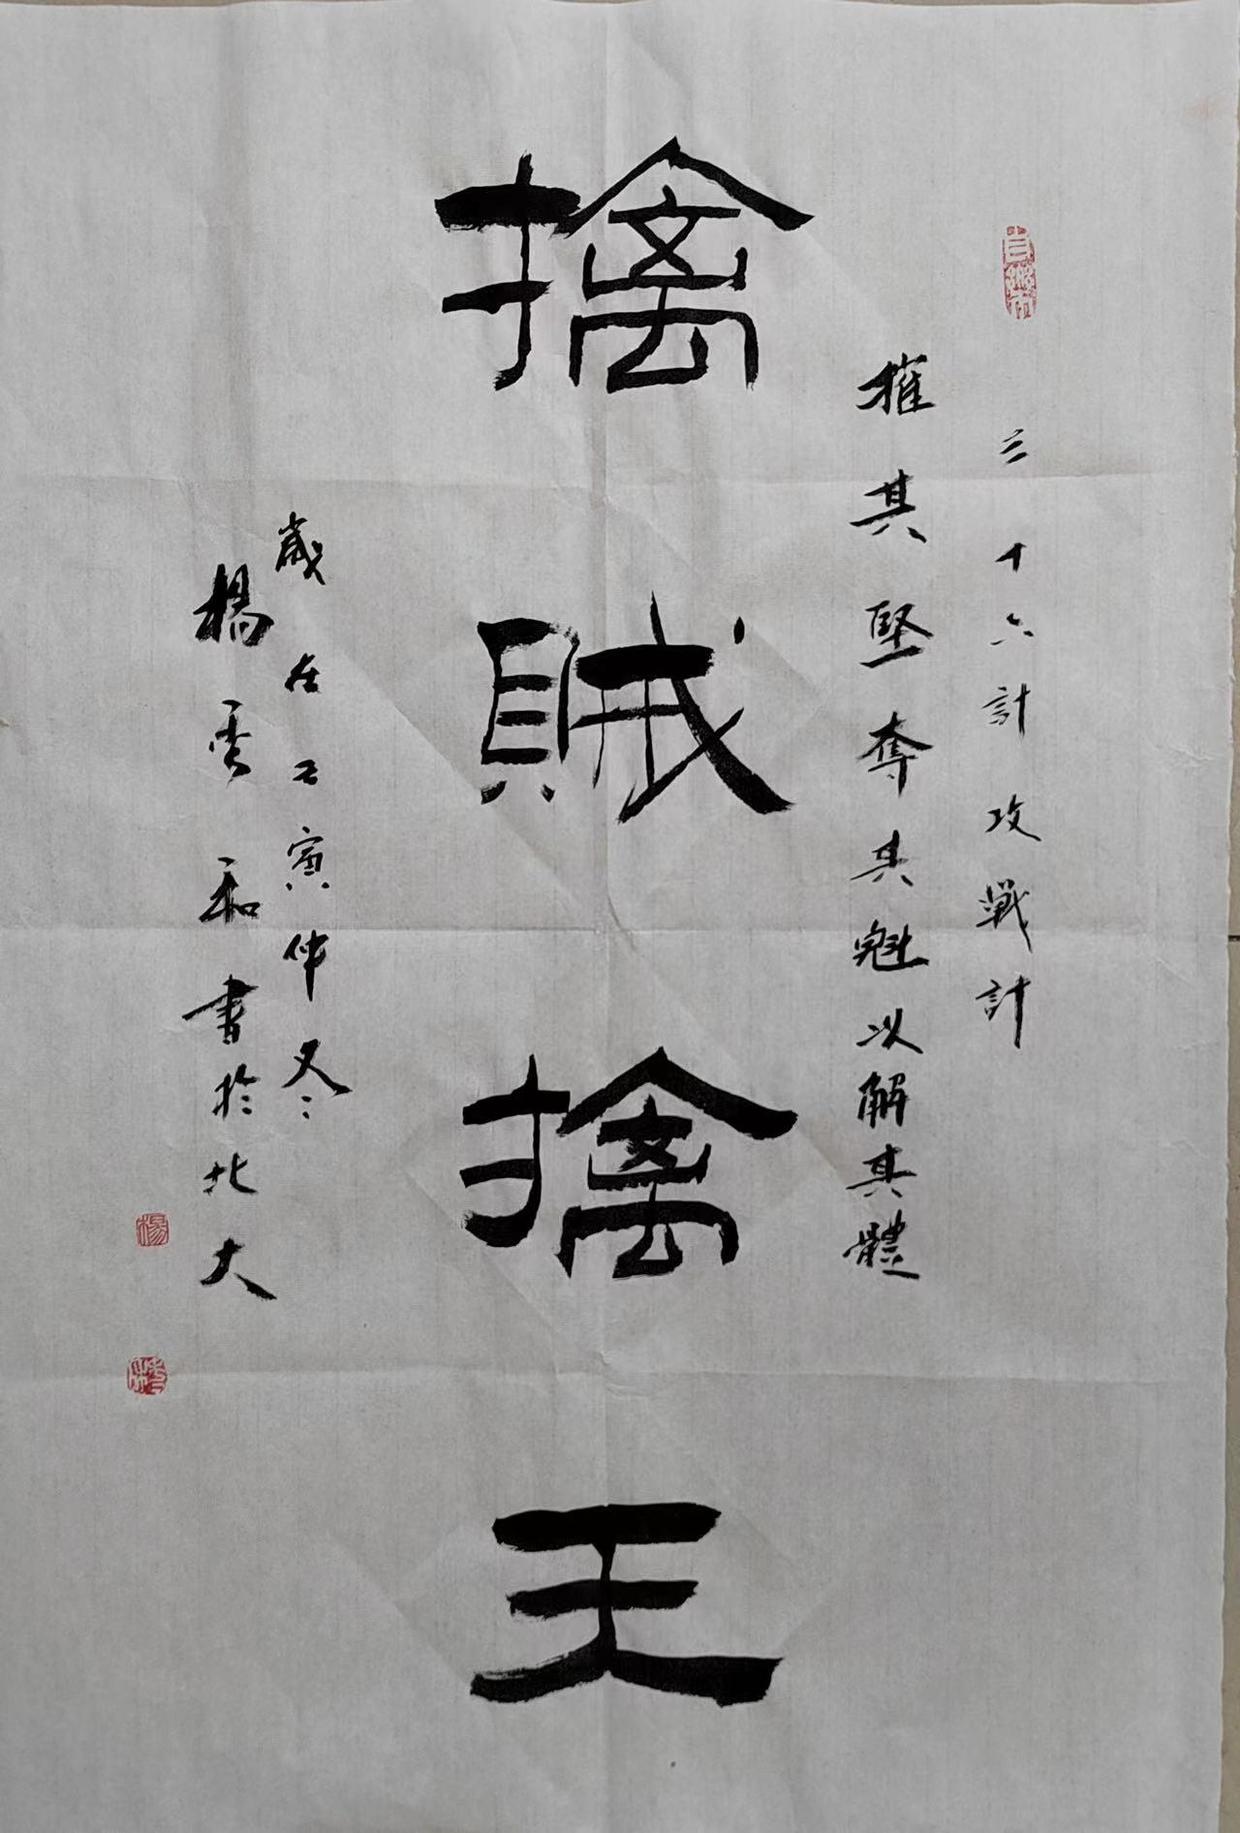 三十六計攻戰計
摧其堅奪其魁以解其體
擒賊擒王
歲在壬寅仲冬
楊雲和書於北大
楊